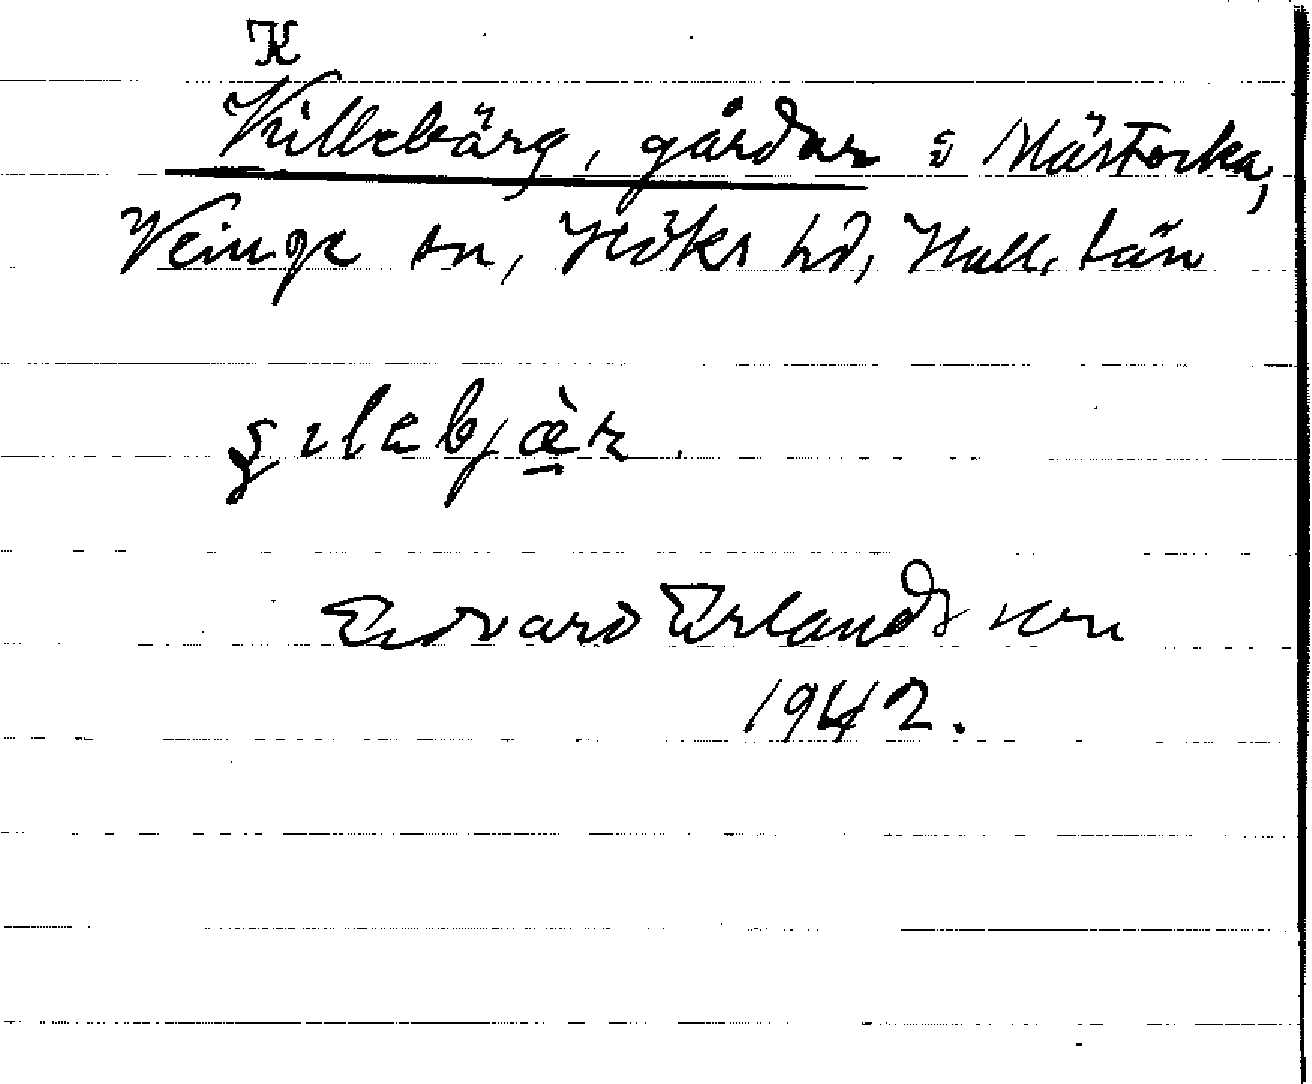 K
Killebärg, gårdar i Mästocka,
Veinge sn, Höks hd, Hall. län
ʂɩlebjæ̀r
Edvard Erlandsson
1942.